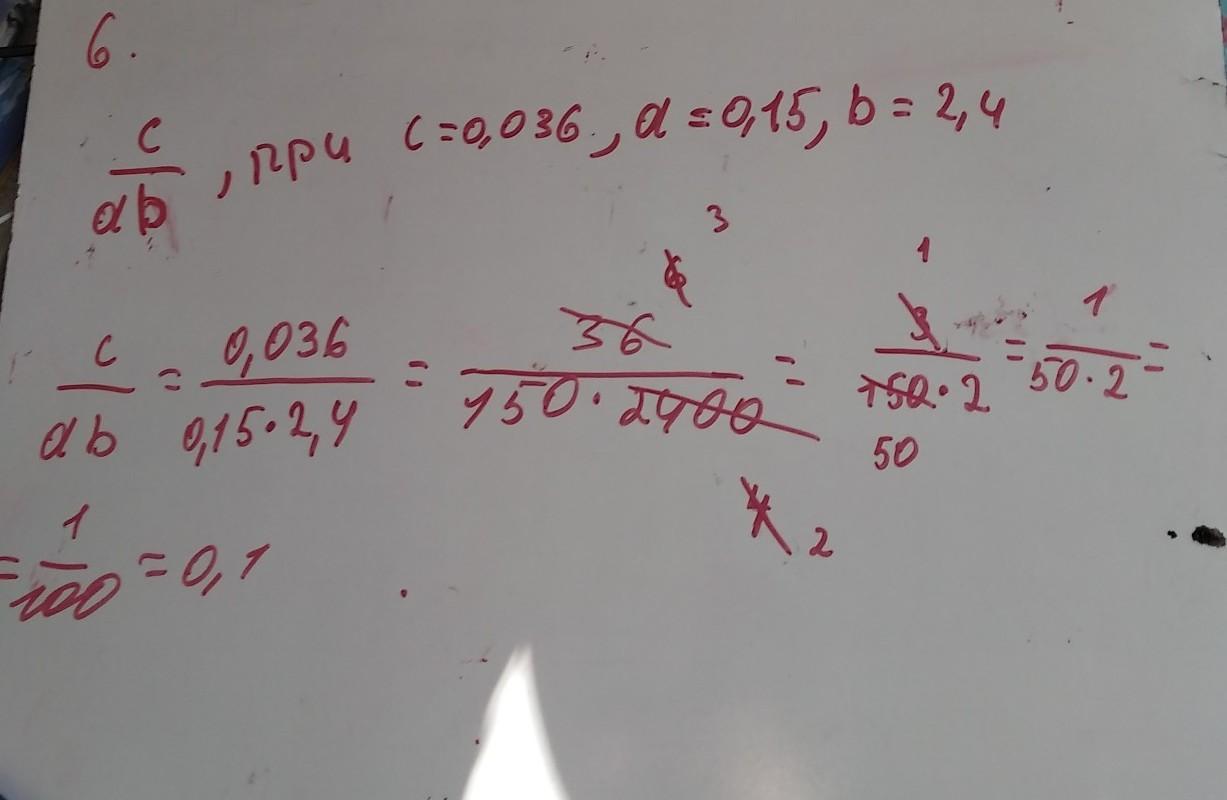 6.
c/ab, при c=0,036, a=0,15, b=2,4
c/ab = 0,036/0,15·2,4 = 36/150·2400 = 3/150·2 = 1/50·2 =
6 3
4 2
1
50
= 1/100 = 0,1